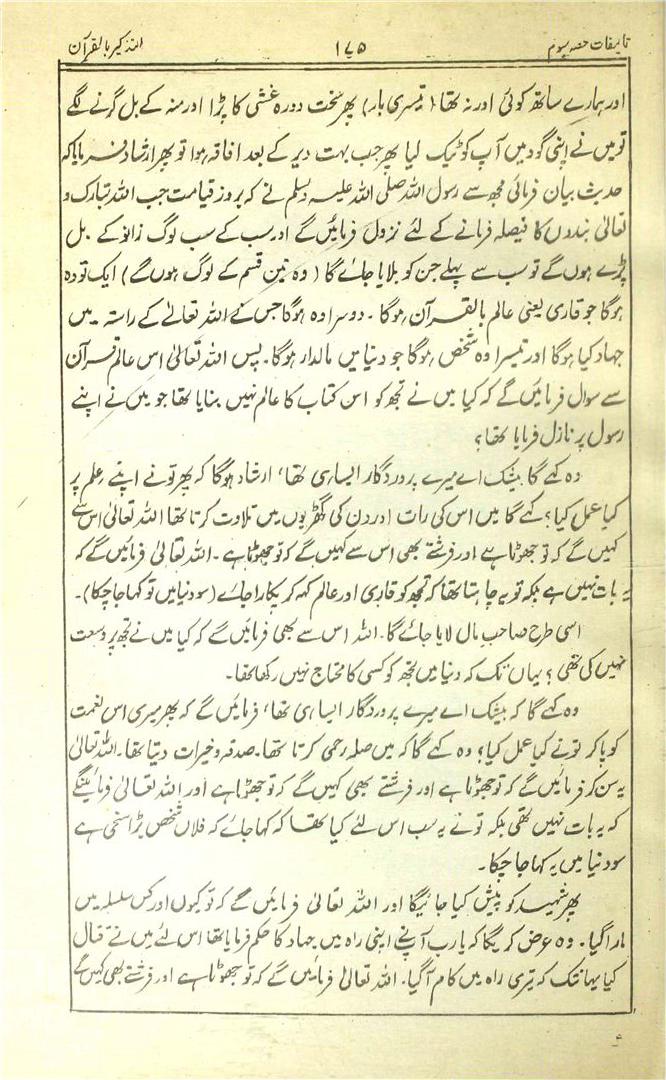 تالیفات حصہ سوم ۱۷۵ التذکیر بالقرآن
اور ہمارے ساتھ کوئی اور نہ تھا (تیسری بار) پھر سخت دورہ غشی کا پڑا اور منہ کے بل گرنے لگے
تو میں نے اپنی گود میں آپ کو ٹیک لیا پھر جب بہت دیر کے بعد افاقہ ہوا تو پھر ارشاد فرمایا کہ
حدیث بیان فرمائی مجھ سے رسول اللہ صلی اللہ علیہ وسلم نے کہ بروز قیامت جب اللہ تبارک و
تعالیٰ بندوں کا فیصلہ فرمانے کے لئے نزول فرمائیں گے اور سب کے سب لوگ زانو کے بل
پڑے ہوں گے تو سب سے پہلے جن کو بلایا جائے گا (وہ تین قسم کے لوگ ہوں گے) ایک تو وہ
ہوگا جو قاری یعنی عالم بالقرآن ہوگا ۔ دوسرا وہ ہوگا جس نے اللہ تعالےٰ کے راستہ میں
جہاد کیا ہوگا اور تیسرا وہ شخص ہوگا جو دنیا میں مالدار ہوگا ۔ پس اللہ تعالیٰ اس عالم قرآن
سے سوال فرمائیں گے کہ کیا میں نے تجھ کو اس کتاب کا عالم نہیں بنایا تھا جو میں نے اپنے
رسول پر نازل فرمایا تھا؟
وہ کہے گا بیشک اے میرے پروردگار ایسا ہی تھا، ارشاد ہوگا کہ پھر تو نے اپنے علم پر
کیا عمل کیا؟ کہے گا میں اس کی رات اور دن کی گھڑیوں میں تلاوت کرتا تھا اللہ تعالیٰ اس سے
کہیں گے کہ تو جھوٹا ہے اور فرشتے بھی اس سے کہیں گے کہ تو جھوٹا ہے ۔ اللہ تعالیٰ فرمائیں گے کہ
یہ بات نہیں ہے بلکہ تو یہ چاہتا تھا کہ تجھ کو قاری اور عالم کہہ کر پکارا جائے (سو دنیا میں تو کہا جا چکا)۔
اسی طرح صاحب مال لایا جائے گا ۔ اللہ اس سے بھی فرمائیں گے کہ کیا میں نے تجھ پر وسعت
نہیں کی تھی؟ یہاں تک کہ دنیا میں تجھ کو کسی کا محتاج نہیں رکھا تھا۔
وہ کہے گا کہ بیشک اے میرے پروردگار ایسا ہی تھا، فرمائیں گے کہ پھر میری اس نعمت
کو پا کر تو نے کیا عمل کیا؟ وہ کہے گا کہ میں صلہ رحمی کرتا تھا۔ صدقہ و خیرات دیتا تھا۔ اللہ تعالیٰ
یہ سن کر فرمائیں گے کہ تو جھوٹا ہے اور فرشتے بھی کہیں گے کہ تو جھوٹا ہے اور اللہ تعالیٰ فرمائینگے
کہ یہ بات نہیں تھی بلکہ تو نے یہ سب اس لئے کیا تھا کہ کہا جائے کہ فلاں شخص بڑا سخی ہے
سو دنیا میں یہ کہا جا چکا۔
پھر شہید کو پیش کیا جائیگا اور اللہ تعالیٰ فرمائیں گے کہ تو کیوں اور کس سلسلہ میں
مارا گیا ۔ وہ عرض کریگا کہ یا رب آپنے اپنی راہ میں جہاد کا حکم فرمایا تھا اس لئے میں نے قتال
کیا یہانتک کہ تیری راہ میں کام آگیا ۔ اللہ تعالیٰ فرمائیں گے کہ تو جھوٹا ہے اور فرشتے بھی کہیں گے